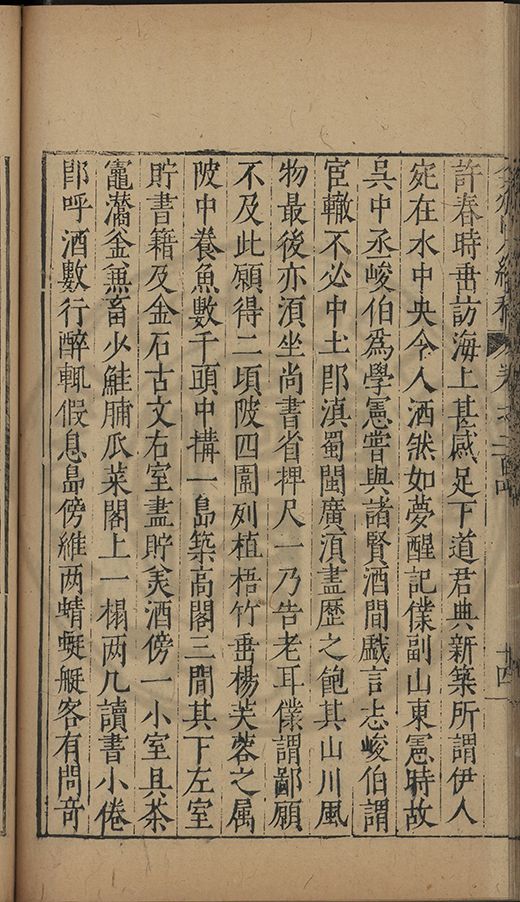 許春時垂訪海上甚感足下道君典新築所謂伊人
宛在水中央令人洒然如夢醒記僕副山東憲時故
吳中丞峻伯為學憲嘗與諸賢酒間戲言志峻伯謂
宦轍不必中土即滇蜀閩廣湏盡歷之飽其山川風
物最後亦湏坐尚書省捭尺一乃告老耳僕謂鄙願
不及此願得二頃陂四圍列植梧竹垂楊芙蓉之属
陂中養魚數千頭中搆一島築高閣三間其下左室
貯書籍及金石古文右室盡貯美酒傍一小室具茶
竈藩釡無畜少鮭脯瓜菜閣上一榻两几讀書小倦
即呼酒數行醉輒假息島傍維两蜻蜓艇客有問奇
十四